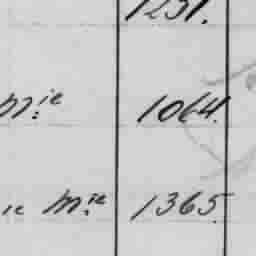 1251.
M.ie 1064.
ie M.ie 1365